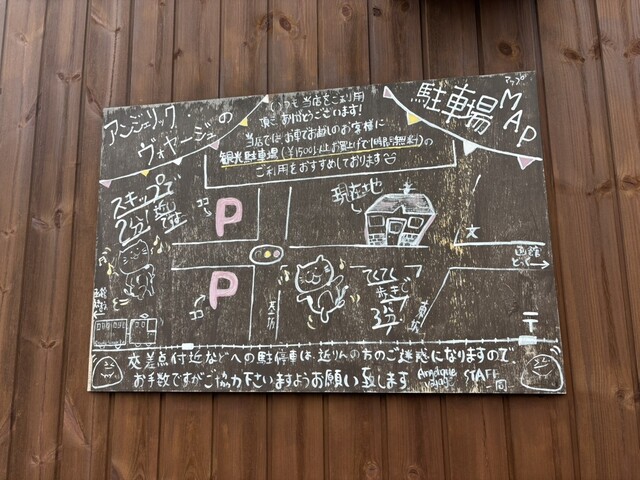 アンジェリック・ヴォヤージュの
駐車場MAP
いつも当店をご利用
頂き ありがとうございます!
当店では お車でお越しのお客様に
観光駐車場(¥1500以上お買上げで1時間無料)の
ご利用をおすすめしております
スキップで
2分!
近いですよ
ココ
P
現在地
函館
どっく
P
ココ
てくてく
歩きで
3分
〒
交差点付近などへの駐停車は、近りんの方のご迷惑になりますので、
お手数ですがご協力下さいますようお願い致します
Angelique
Voyage
STAFF